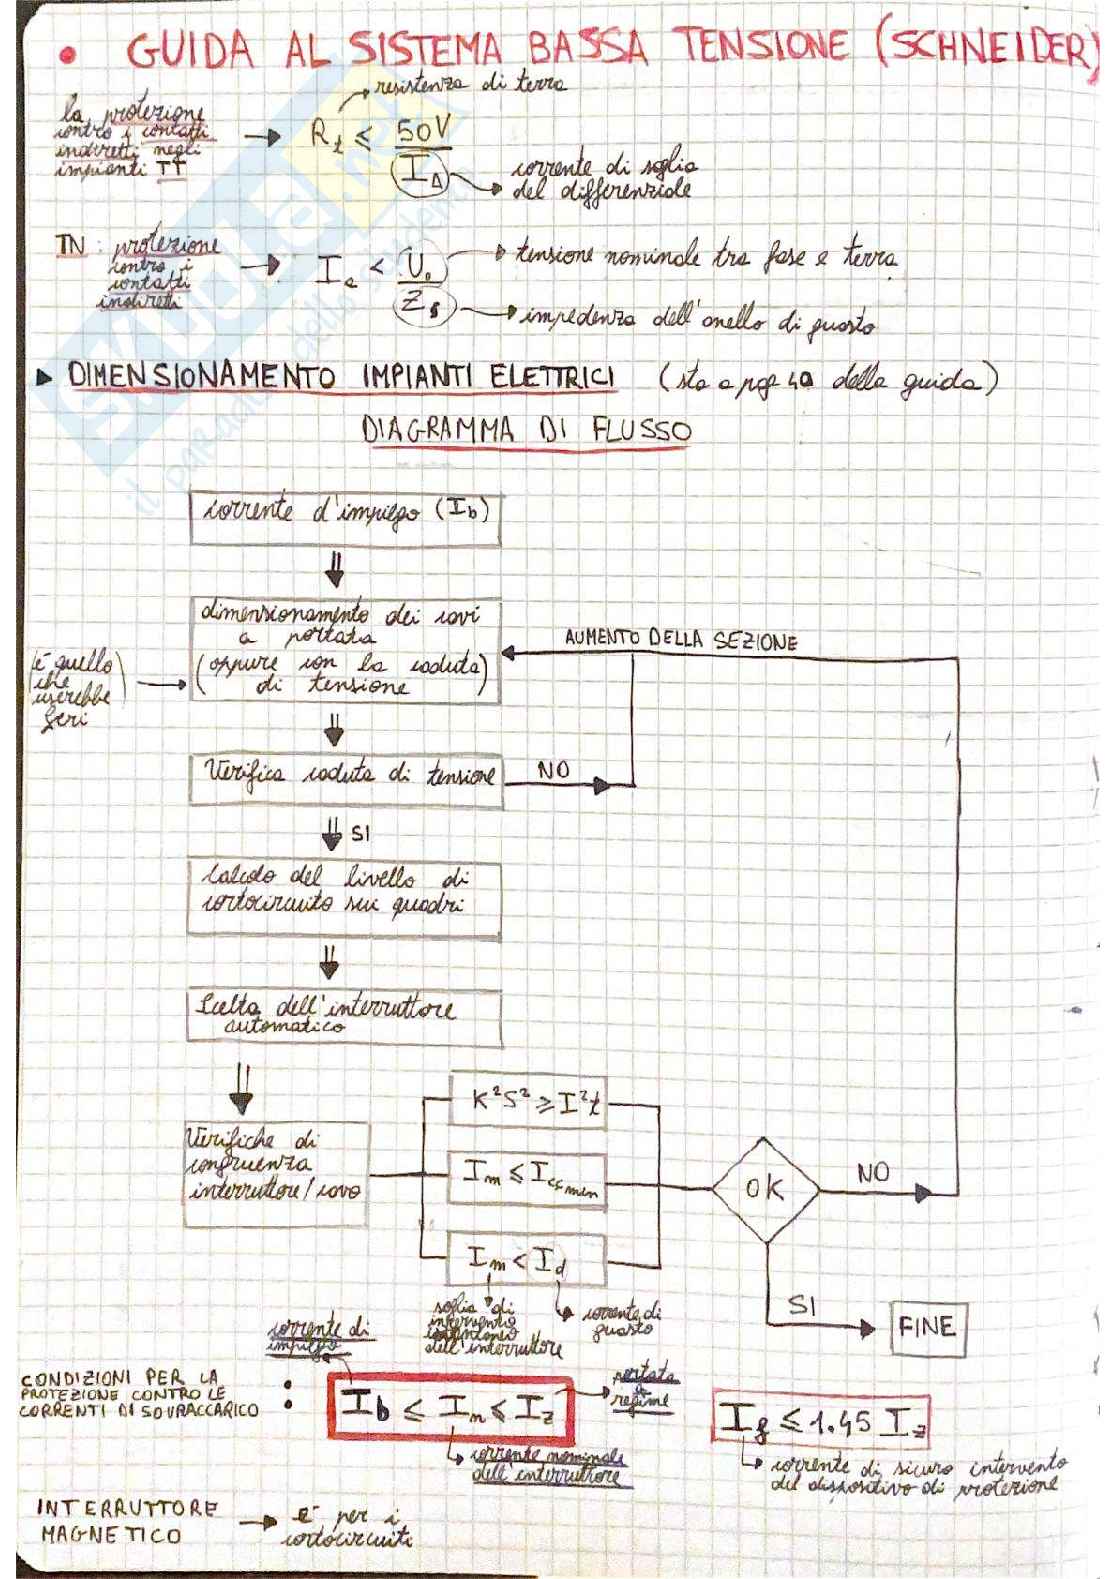 • GUIDA AL SISTEMA BASSA TENSIONE (SCHNEIDER)
resistenza di terra
la protezione
contro i contatti
indiretti negli
impianti TT
R_t ≤ 50V / I_Δ
corrente di soglia
del differenziale
TN : protezione
contro i
contatti
indiretti
I_a < U_o / Z_s
tensione nominale tra fase e terra
impedenza dell'anello di guasto
▶ DIMENSIONAMENTO IMPIANTI ELETTRICI (sta a pag 40 della guida)
DIAGRAMMA DI FLUSSO
corrente d'impiego (I_b)
dimensionamento dei cavi
a portata
(oppure con la caduta)
di tensione
(è quello)
che
userebbe
Geri
AUMENTO DELLA SEZIONE
Verifica caduta di tensione
NO
SI
Calcolo del livello di
cortocircuito sui quadri
Scelta dell'interruttore
automatico
Verifiche di
congruenza
interruttore/cavo
K²S² ≥ I²t
I_m ≤ I_cc min
I_m < I_d
OK
NO
SI
FINE
soglia di
intervento
istantaneo
dell'interruttore
corrente di
guasto
corrente di
impiego
CONDIZIONI PER LA
PROTEZIONE CONTRO LE
CORRENTI DI SOVRACCARICO :
I_b ≤ I_n ≤ I_z
portata
a
regime
corrente nominale
dell'interruttore
I_f ≤ 1.45 I_z
corrente di sicuro intervento
del dispositivo di protezione
INTERRUTTORE
MAGNETICO
è per i
cortocircuiti